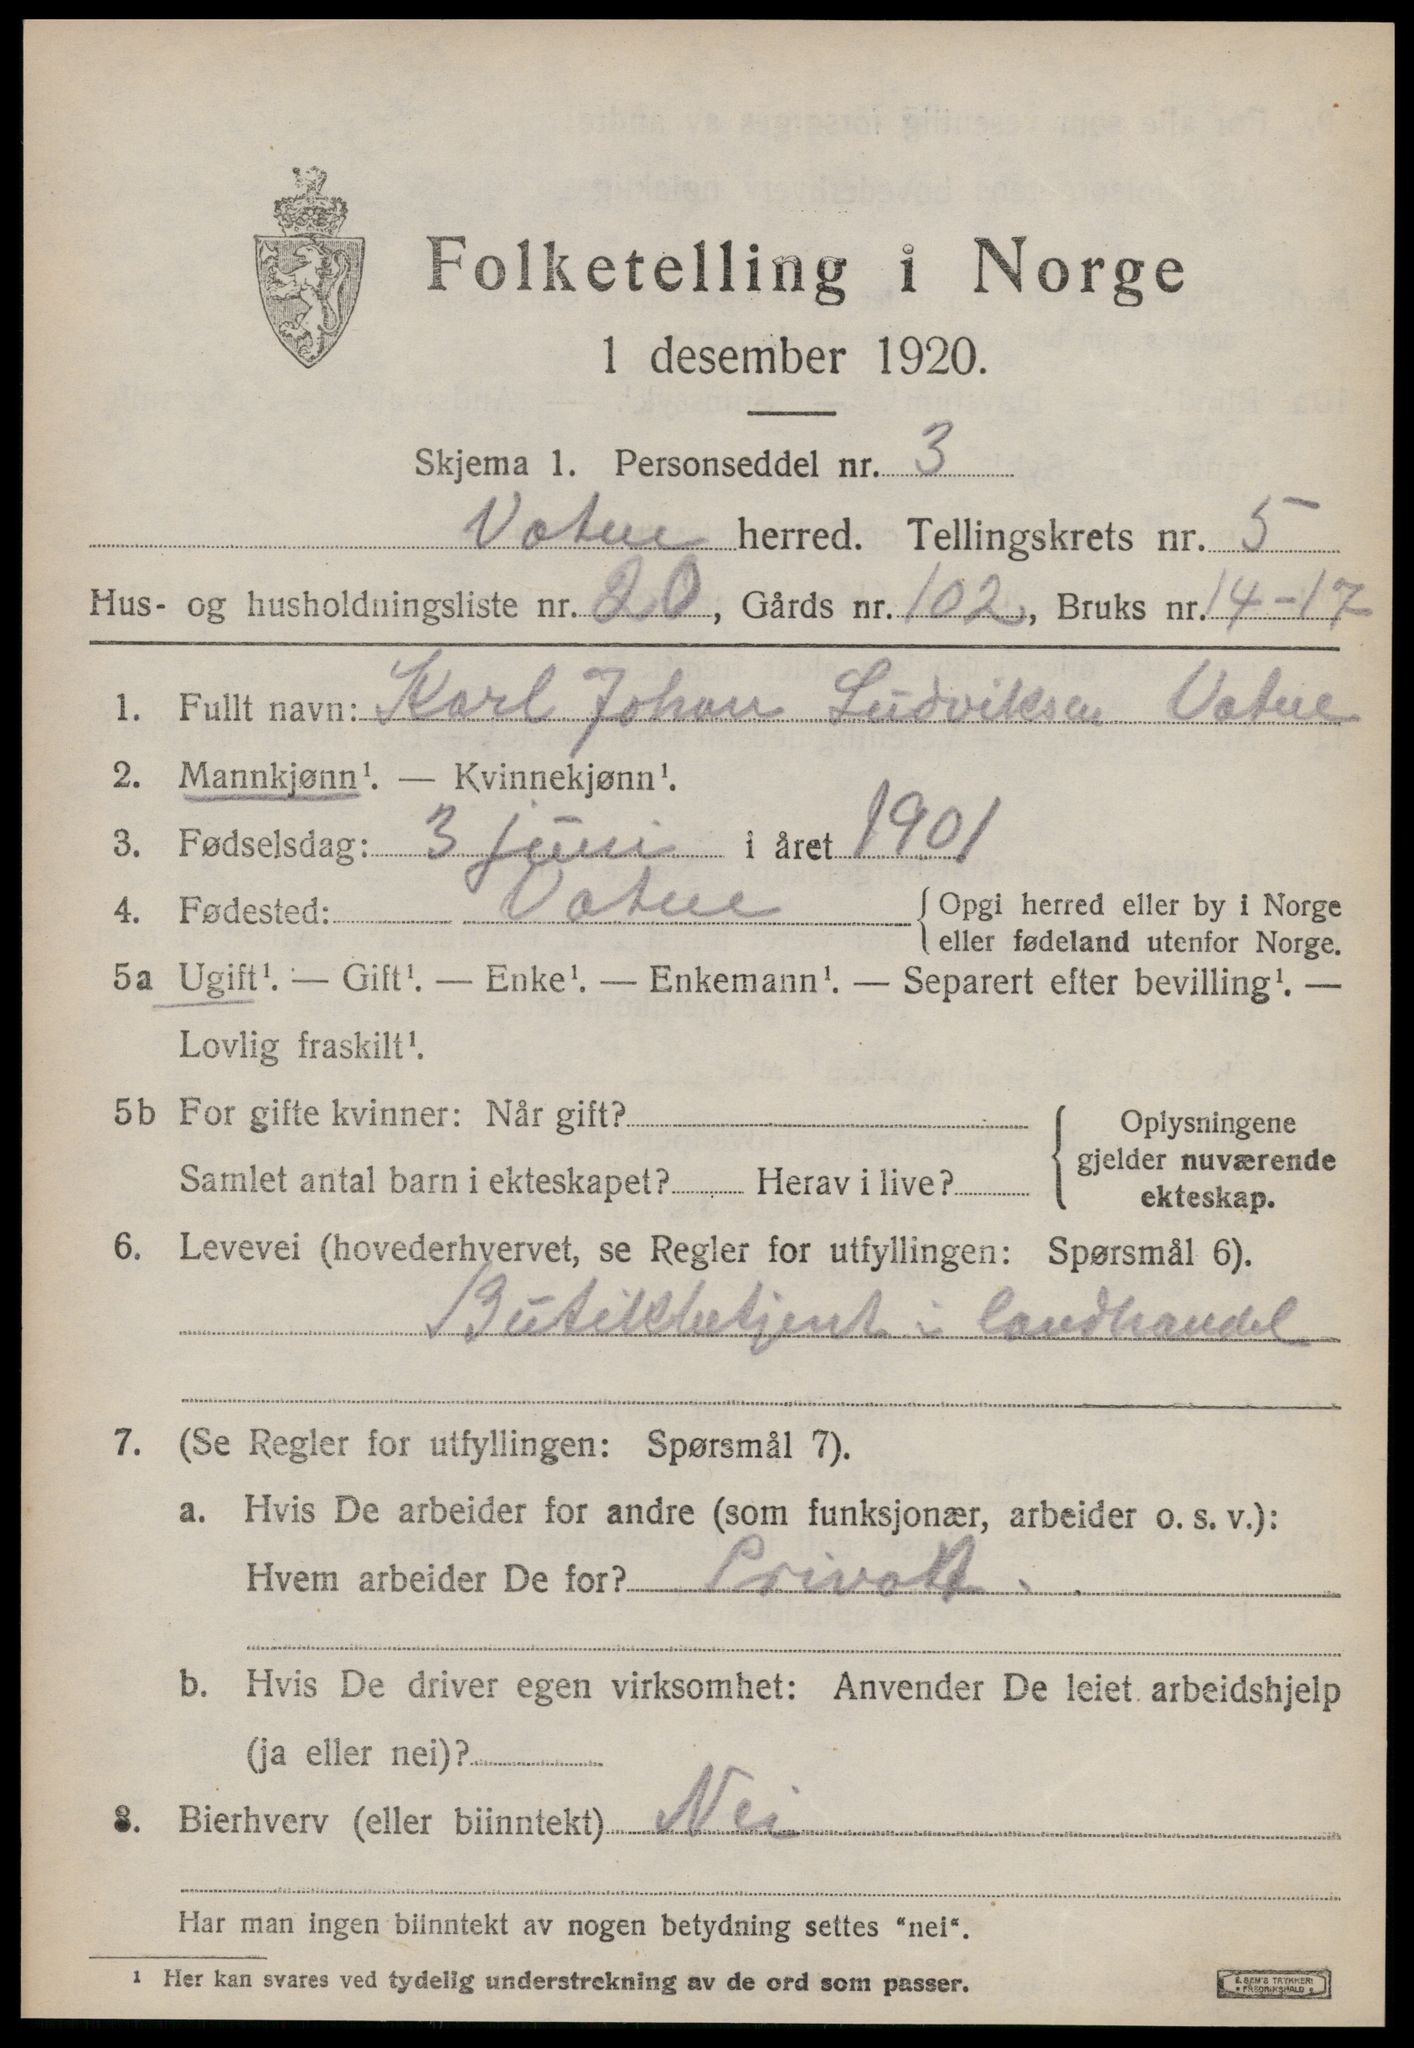 Folketelling i Norge
1 desember 1920.
Skjema 1. Personseddel nr. 3
Vatne herred. Tellingskrets nr. 5
Hus- og husholdningsliste nr. 20, Gårds nr. 102, Bruks nr. 14-17
1. Fullt navn: Karl Johan Ludviksen Vatne
2. Mannkjønn¹. — Kvinnekjønn¹.
3. Fødselsdag: 3 juni i året 1901
4. Fødested: Vatne { Opgi herred eller by i Norge
eller fødeland utenfor Norge.
5a Ugift¹. — Gift¹. — Enke¹. — Enkemann¹. — Separert efter bevilling¹. —
Lovlig fraskilt¹.
5b For gifte kvinner: Når gift? { Oplysningene
gjelder nuværende
ekteskap.
Samlet antal barn i ekteskapet? Herav i live?
6. Levevei (hovederhvervet, se Regler for utfyllingen: Spørsmål 6).
Butikbetjent i landhandel
7. (Se Regler for utfyllingen: Spørsmål 7).
a. Hvis De arbeider for andre (som funksjonær, arbeider o. s. v.):
Hvem arbeider De for? Privatt.
b. Hvis De driver egen virksomhet: Anvender De leiet arbeidshjelp
(ja eller nei)?
8. Bierhverv (eller biinntekt) Nei
Har man ingen biinntekt av nogen betydning settes "nei".
¹ Her kan svares ved tydelig understrekning av de ord som passer.
E. SEM'S TRYKKERI
• FREDRIKSHALD •